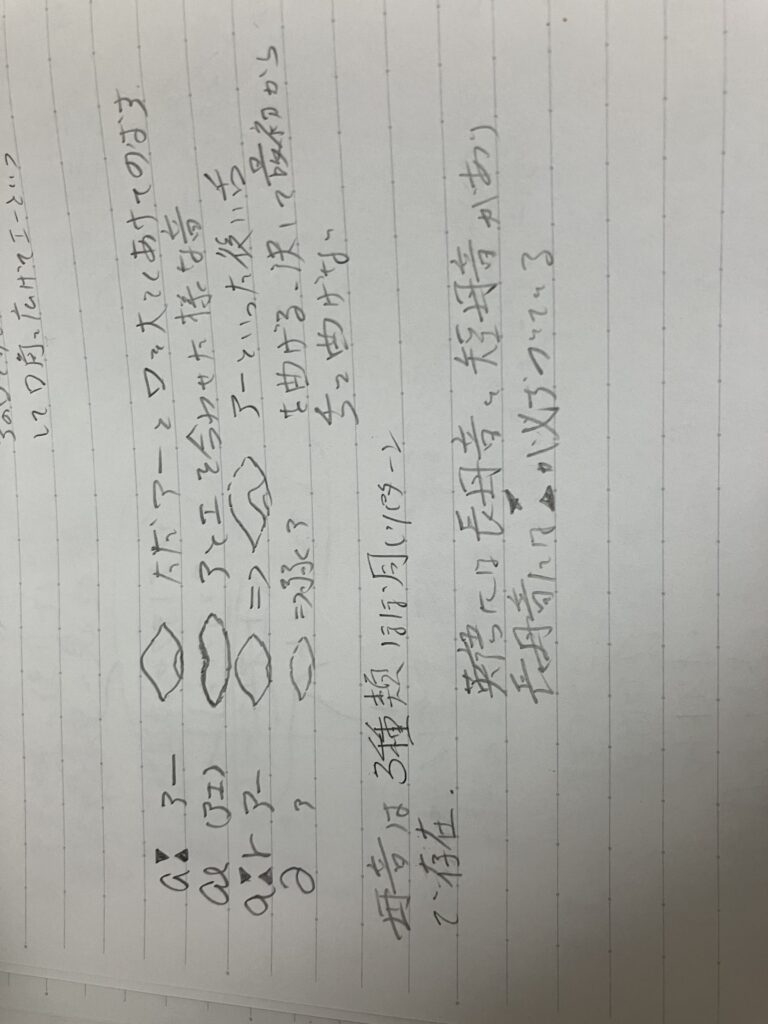 して口角を広げてエーという
aː アー ただアーと口を大きくあけてのばす
æ (アエ) アとエを合わせた様な音
aːr アー ⇒ アーといった後に舌
を曲げる、決して最初から
ə ア ⇒弱くア
曲げない
母音は3種類ほぼ同じパターン
で存在.
英語には長母音と短母音があり
長母音にはːが必ずついている